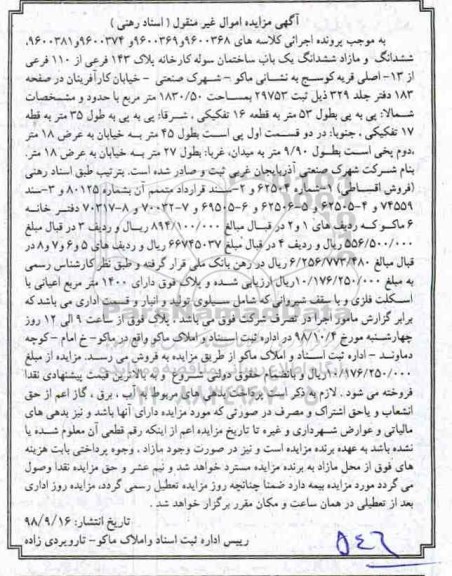 آگهی مزایده اموال غیر منقول ( اسناد رهنی )
به موجب پرونده اجرائی کلاسه های ۹۶۰۰۳۶۸و۹۶۰۰۳۶۹و ۹۶۰۰۳۷۴و ۹۶۰۰۳۸۱،
ششدانگ و مازاد ششدانگ یک باب ساختمان سوله کارخانه پلاک ۱۴۳ فرعی از ۱۱۰ فرعی
از ۱۳- اصلی قریه کوسج به نشانی ماکو – شهرک صنعتی - خیابان کارآفرینان در صفحه
۱۸۳ دفتر جلد ۳۲۹ ذیل ثبت ۲۹۷۵۳ بمساحت ۱۸۳۰/۵۰ متر مربع با حدود و مشخصات
شمالا: پی به پی بطول ۵۳ متر به قطعه ۱۶ تفکیکی ، شرقا: پی به پی به طول ۳۵ متر به قطه
۱۷ تفکیکی ، جنوبا: در دو قسمت اول پی است بطول ۴۵ متر به خیابان به عرض ۱۸ متر
،دوم پخی است بطول ۹/۹۰ متر به میدان، غربا: بطول ۲۷ متر به خیابان به عرض ۱۸ متر،
بنام شرکت شهرک صنعتی آذربایجان غربی ثبت و صادر شده است. بترتیب طبق اسناد رهنی
(فروش اقساطی) ۱-شماره ۶۲۵۰۴ ۲-سند قرارداد متمم آن بشماره ۸۰۱۲۵ و ۳-سند
۷۴۵۵۹ و ۴-۶۲۵۰۵ و ۵-۶۲۵۰۶ و ۶-۶۹۵۰۵ و ۷-۷۰۰۳۲ و ۸-۷۰۳۱۷ دفتر خانه
۶ ماکو که ردیف های ۱ و۲ در قبال مبلغ ۸۹۴/۱۰۰/۰۰۰ ریال و ردیف ۳ در قبال مبلغ
۵۵۶/۵۰۰/۰۰۰ ریال و ردیف ۴ در قبال مبلغ ۶۶۷۴۵۰۳۷ ریال و ردیف های ۵ و۶ و۷ و۸ در
قبال مبالغ ۶/۲۵۶/۷۷۳/۴۸۰ ریال در رهن بانک ملی قرار گرفته و طبق نظر کارشناس رسمی
به مبلغ ۱۰/۱۷۶/۲۵۰/۰۰۰ریال ارزیابی شده و پلاک فوق دارای ۱۴۰۰ متر مربع اعیانی با
اسکلت فلزی و با سقف شیروانی که شامل سیلوی تولید و انبار و قسمت اداری می باشد که
برابر گزارش مامور اجرا در تصرف شرکت فوق می باشد . پلاک فوق از ساعت ۹ الی ۱۲ روز
چهارشنبه مورخ ۹۸/۱۰/۴ در اداره ثبت اسناد و املاک ماکو واقع در ماکو- خ امام -کوچه
دماوند - اداره ثبت اسناد و املاک ماکو از طریق مزایده به فروش می رسد. مزایده از مبلغ
۱۰/۱۷۶/۲۵۰/۰۰۰ریال و بانضمام حقوق دولتی شروع و به بالاترین قیمت پیشنهادی نقدا
فروخته می شود . لازم به ذکر است پرداخت بدهی های مربوط به آب ، برق ، گاز اعم از حق
انشعاب و یاحق اشتراک و مصرف در صورتی که مورد مزایده دارای آنها باشد و نیز بدهی های
مالیاتی و عوارض شهرداری و غیره تا تاریخ مزایده اعم از اینکه رقم قطعی آن معلوم شده یا
نشده باشد به عهده برنده مزایده است و نیز در صورت وجود مازاد ، وجوه پرداختی بابت هزینه
های فوق از محل مازاد به برنده مزایده مسترد خواهد شد و نیم عشر و حق مزایده نقدا وصول
می گردد مورد مزایده بیمه دارد ضمنا چنانچه روز مزایده تعطیل رسمی گردد، مزایده روز اداری
بعد از تعطیلی در همان ساعت و مکان مقرر برگزار خواهد شد .
تاریخ انتشار: ۹۸/۹/۱۶
رییس اداره ثبت اسناد واملاک ماکو- تاروبردی زاده
۵۴۶